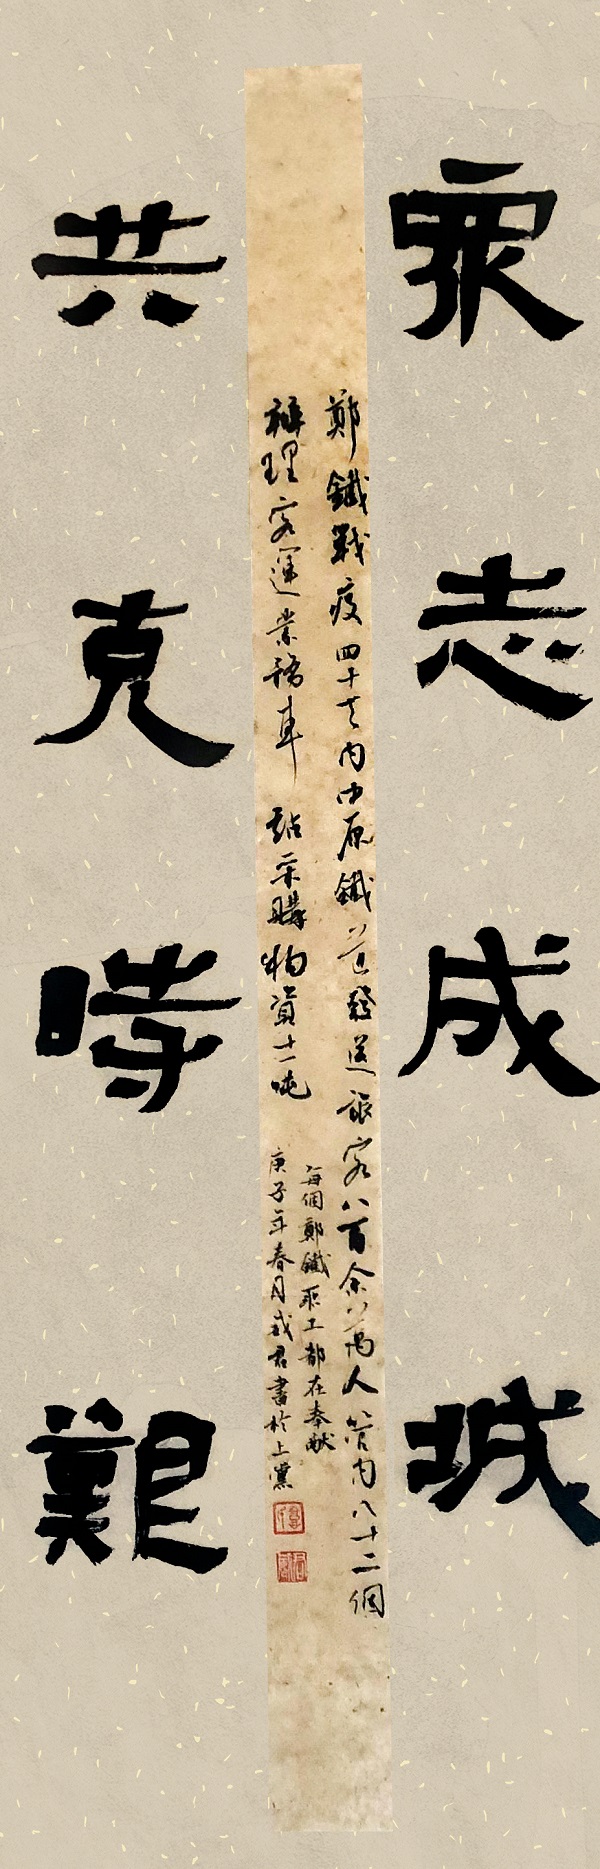 眾志成城
鄭鐵戰疫四十天內中原鐵道發送旅客八百余萬人管內八十二個
辦理客運業務車站采購物資十一吨
每個鄭鐵职工都在奉献
庚子年春月成君書於上黨
共克時艱